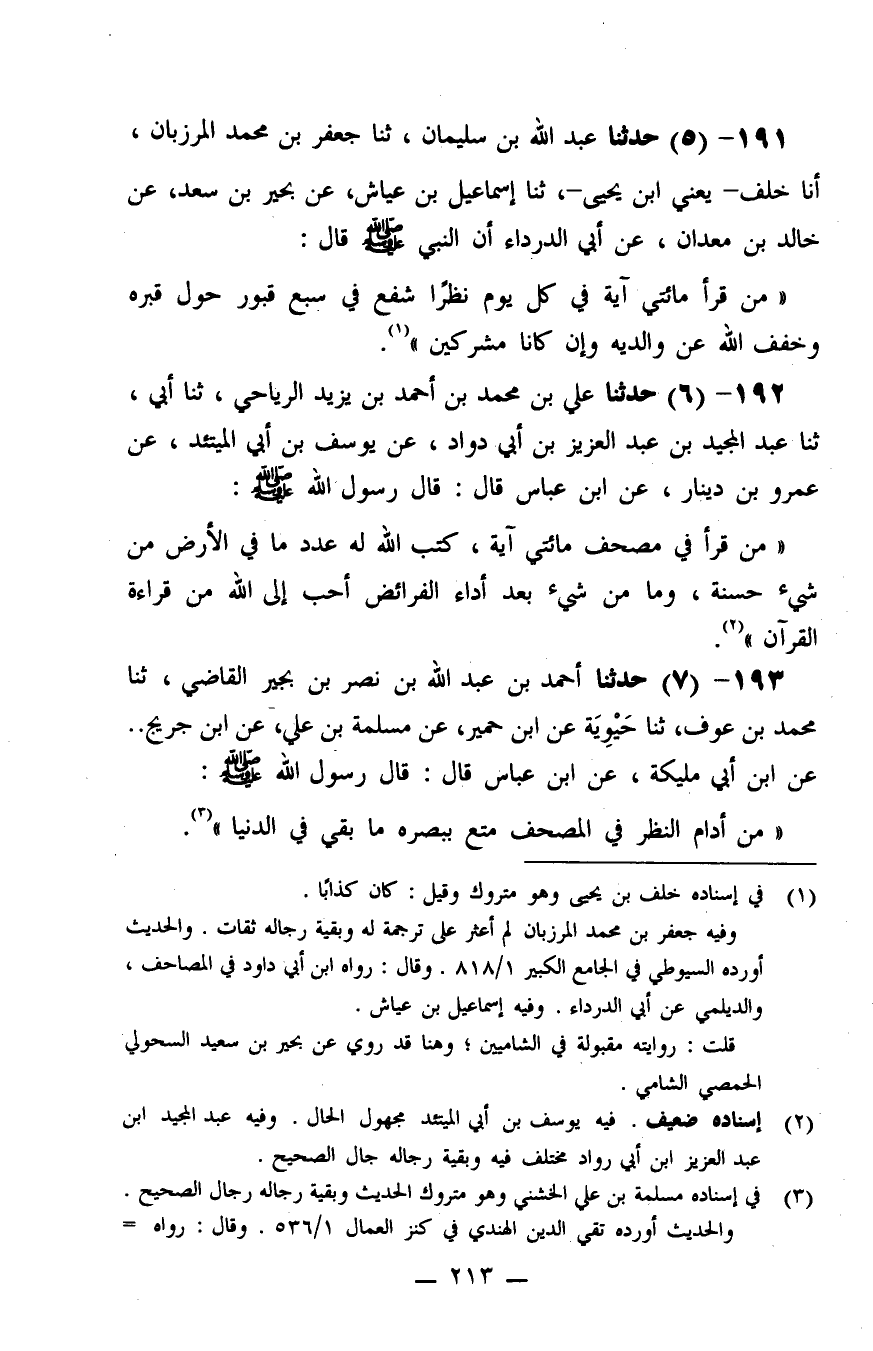 ١٩١- (٥) حدثنا عبد الله بن سليمان ، ثنا جعفر بن محمد المرزبان ،
أنا خلف– يعني ابن يحيى–، ثنا إسماعيل بن عياش، عن بحير بن سعد، عن
خالد بن معدان ، عن أبي الدرداء أن النبي ﷺ قال :
« من قرأ مائتي آية في كل يوم نظرًا شفع في سبع قبور حول قبره
وخفف الله عن والديه وإن كانا مشركين »(١).
١٩٢- (٦) حدثنا علي بن محمد بن أحمد بن يزيد الرياحي ، ثنا أبي ،
ثنا عبد المجيد بن عبد العزيز بن أبي دواد ، عن يوسف بن أبي الميتئد ، عن
عمرو بن دينار ، عن ابن عباس قال : قال رسول الله ﷺ :
« من قرأ في مصحف مائتي آية ، كتب الله له عدد ما في الأرض من
شيء حسنة ، وما من شيء بعد أداء الفرائض أحب إلى الله من قراءة
القرآن »(٢).
١٩٣- (٧) حدثنا أحمد بن عبد الله بن نصر بن بجير القاضي ، ثنا
محمد بن عوف، ثنا حَيْوِيَة عن ابن حمير، عن مسلمة بن علي، عن ابن جريج..
عن ابن أبي مليكة ، عن ابن عباس قال : قال رسول الله ﷺ :
« من أدام النظر في المصحف متع ببصره ما بقي في الدنيا »(٣).
(١) في إسناده خلف بن يحيى وهو متروك وقيل : كان كذابًا .
وفيه جعفر بن محمد المرزبان لم أعثر على ترجمة له وبقية رجاله ثقات . والحديث
أورده السيوطي في الجامع الكبير ٨١٨/١ . وقال : رواه ابن أبي داود في المصاحف ،
والديلمي عن أبي الدرداء . وفيه إسماعيل بن عياش .
قلت : روايته مقبولة في الشاميين ؛ وهنا قد روي عن بحير بن سعيد السحولي
الحمصي الشامي .
(٢) إسناده ضعيف . فيه يوسف بن أبي الميتئد مجهول الحال . وفيه عبد المجيد ابن
عبد العزيز ابن أبي رواد مختلف فيه وبقية رجاله جال الصحيح .
(٣) في إسناده مسلمة بن علي الخشني وهو متروك الحديث وبقية رجاله رجال الصحيح .
والحديث أورده تقي الدين الهندي في كنز العمال ٥٣٦/١ . وقال : رواه =
— ٢١٣ —